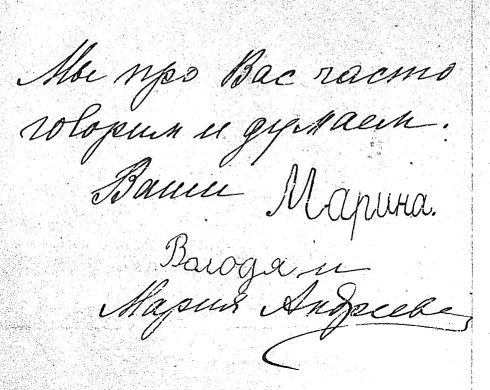 Мы про Вас часто
говорим и думаем.
Ваши Марина.
Володя и
Мария Андреевна